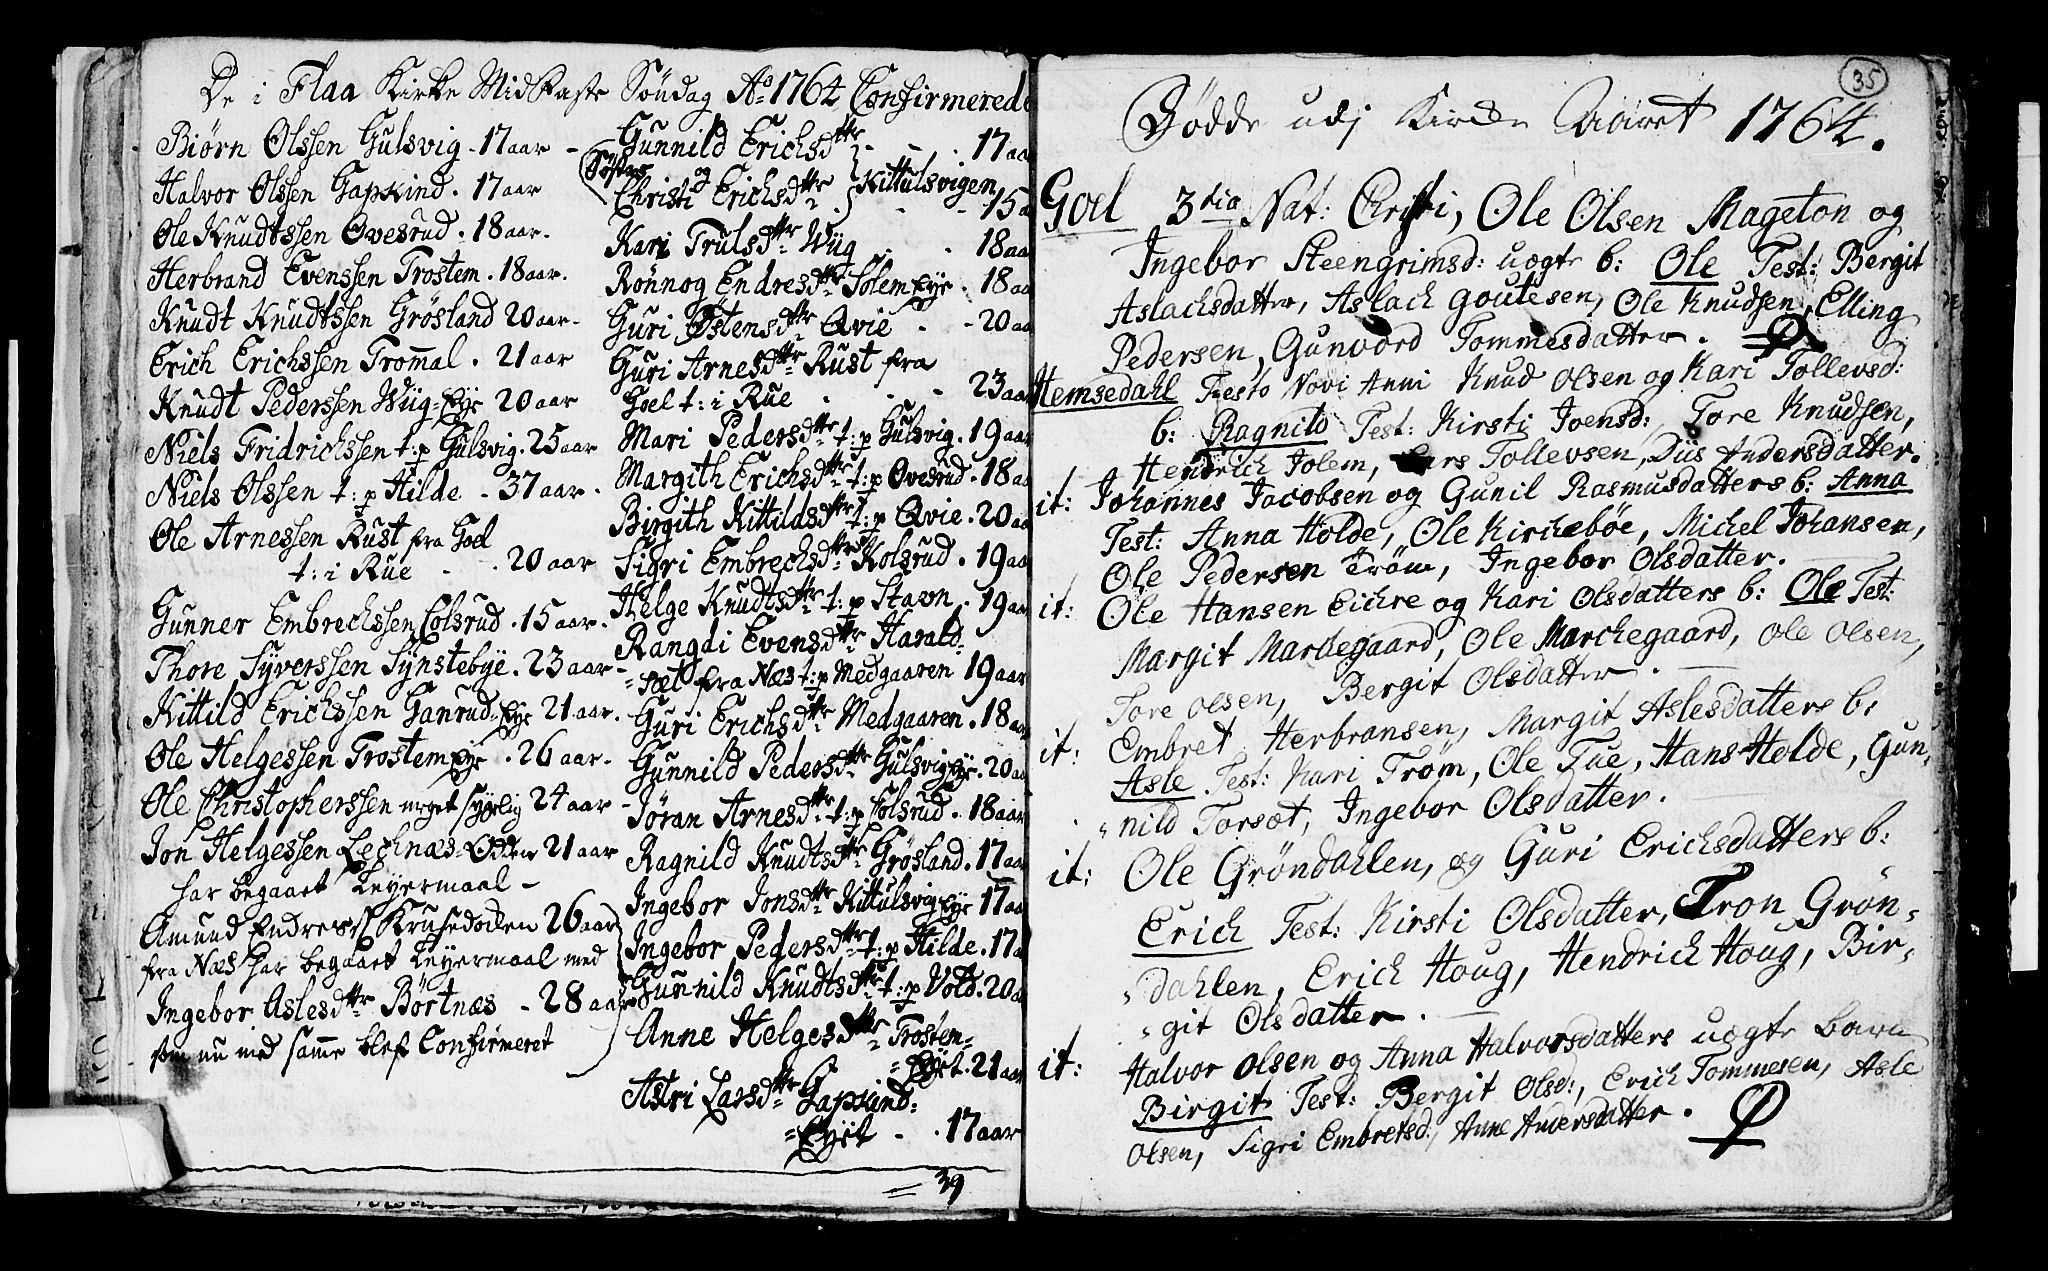 De i Flaa Kirke Midfaste Söndag Ao 1764 Confirmerede
Biörn Olssen Gulsvig - 17 aar -
Halvor Olssen Gapkind . 17 aar
Ole Knudtssen Ovesrud . 18 aar.
Herbrand Evenssen Trostem . 18 aar.
Knudt Knudtssen Grösland 20 aar.
Erich Erichssen Trommal . 21 aar
Knudt Pederssen Wiig-Eye 20 aar
Niels Fridrichssen t: p Gulsvig . 25 aar
Niels Olssen t: p Hilde - 37 aar.
Ole Arnessen Rust fra Goel
t: i Rue - . 20 aar
Gunner Embrechssen Colsrud . 15 aar.
Thore Syverssen Synstebye . 23 aar -
Kittild Erichssen Ganrud-Eye 21 aar.
Ole Helgessen Trostem Eye . 26 aar.
Ole Christopherssen meget sygelig 24 aar -
Jon Helgessen Lechnæs-Odden 21 aar
har begaaet Leyermaal -
Amund Endress: Krusedoden 26 aar
fra Næs har begaaet Leyermaal med
Ingebor Aslesdttr Börtnæs - 28 aar
som nu med samme blef Confirmeret
Gunnild Erichsdttr - - . 17 aa
Söstre og Kittulsvigen
Christi Erichsdttr - - 15 a
Kari Trulsdttr Wiig . . 18 aa
Rönnog Endresdttr Solem Eye . 18 aa
Guri Östensdttr Qvie . - 20 aa
Guri Arnesdttr Rust fra
Goel t: i Rue . . - 23 aa
Mari Pedersdttr t: p Gulsvig . 19 aar
Margith Erichsdttr t: p Ovesrud . 18 aa
Birgith Kittildsdttr t: p Qvie . 20 aa
Sigri Embrechsdttr Kolsrud . 19 aa
Helge Knudtsdttr t: p Stavn . 19 aar
Rangdi Evensdttr Harald-
=sæt fra Næs t: p Medgaaren 19 aar
Guri Erichsdttr Medgaaren . 18 aar
Gunnild Pedersdttr Gulsvig Eye . 20 aa
Jöran Arnesdttr t: p Colsrud . 18 aar
Ragnild Knudtsdttr Grösland . 17 aa
Ingebor Jonsdttr Kittulsvig Eye 17 aa
Ingebor Pedersdttr t: p Hilde . 17 a
Gunnild Knudtsdttr t: p Vold . 20 aa
Anne Helgesdttr Trosten=
=Eyet . 21 aar
Astri Larsdttr Gapkind=
=Eyet - . 17 aar
= 39
35
Dödde udj Kircke Aaret 1764.
Goel 3tia Nat: Christi, Ole Olsen Mageton og
Ingebor Steengrimsd: uægte b: Ole Test: Bergit
Aslachsdatter, Aslach Goutesen, Ole Knudsen, Elling
Pedersen, Gunvord Tommesdatter.
Hemsedahl Festo Novi Anni Knud Olsen og Kari Tollevsd:
b: Ragnild Test: Kirsti Joensd: Tore Knudsen,
Hendrich Jolem, Lars Tollevsen, Diis Andersdatter.
it: Johannes Jacobsen og Gunil Rasmusdatters b: Anna
Test: Anna Holde, Ole Kirckeböe, Michel Johansen,
Ole Pedersen Tröm, Ingebor Olsdatter.
it: Ole Hansen Eickre og Kari Olsdatters b: Ole Test:
Margit Marckegaard, Ole Marckegaard, Ole Olsen,
Tore Olsen, Bergit Olsdatter.
it: Embret Herbransen, Margit Aslesdatters b:
Asle Test: Kari Tröm, Ole Tue, Hans Holde, Gun-
nild Torsæt, Ingebor Olsdatter.
it: Ole Gröndahlen, og Guri Erichsdatters b:
Erich Test: Kirsti Olsdatter, Tron Grön-
dahlen, Erich Houg, Hendrich Houg, Bir-
git Olsdatter.
it: Halvor Olsen og Anna Halvorsdatters uægte barn
Birgit Test: Bergit Olsd:, Erich Tommesen, Asle
Olsen, Sigri Embretsd:, Anne Andersdatter.